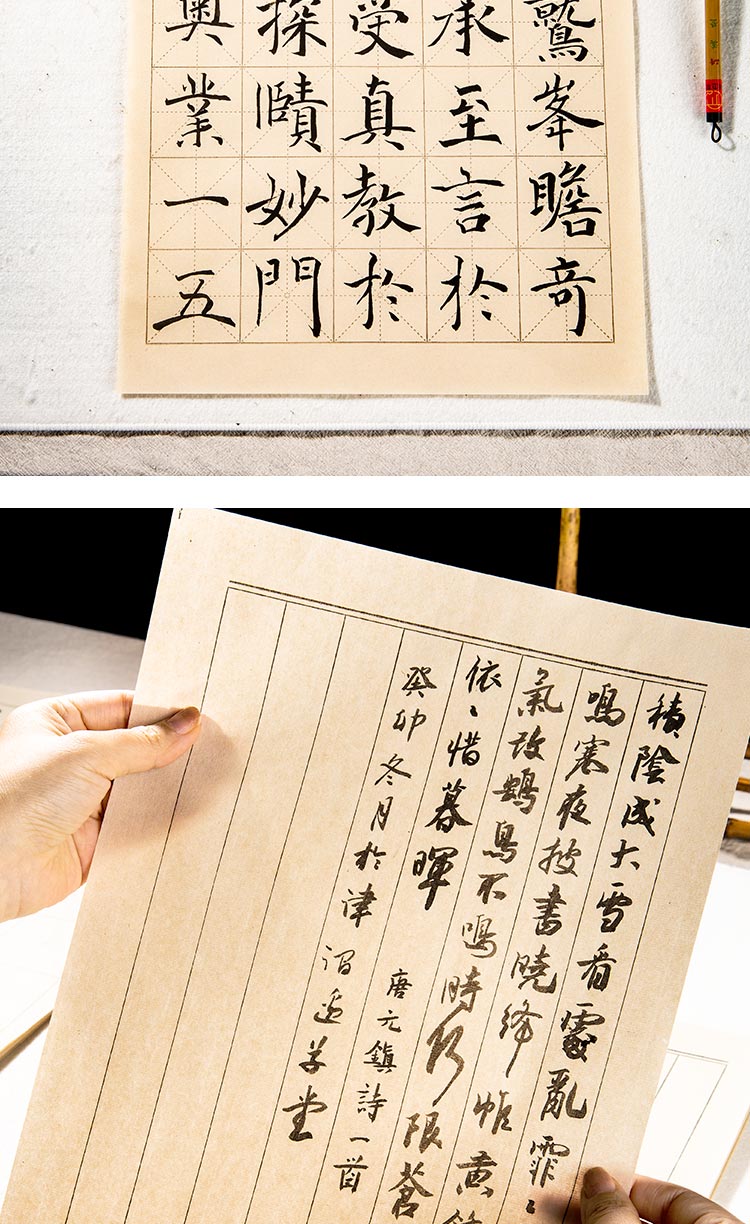 鷲峯瞻奇
承至言於
受真教於
探賾妙門
奧業一五
積陰成大雪看處亂霏〻
鳴寒夜披書曉絳帷黄
氣改鷃鳥不鳴時何限蒼
依〻惜暮暉 唐元鎮詩一首
癸卯冬月於津草堂